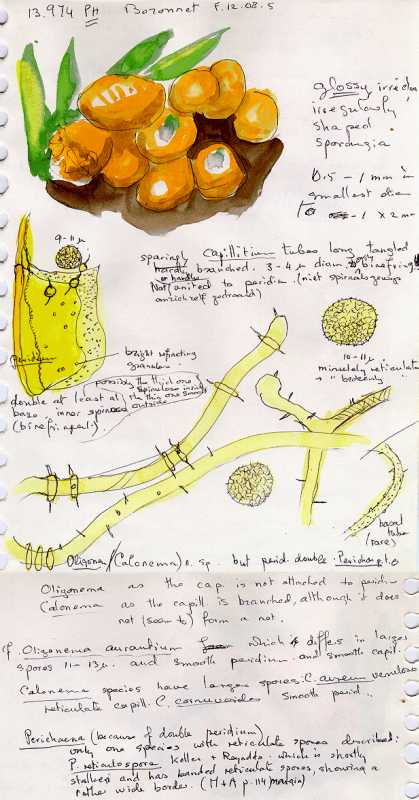 13.974 PH Boronnet F.12.08.5
glossy
irregularly
shaped
sporangia
0.5 - 1 mm in
smallest diam
to - 1 x 2 m
9-11 µ
sparingly Capillitium tubes long tangled
branched. 3-4 µ diam
Not united to peridium. (niet
Peridium
bright refracting
granules
10-11 µ
minutely reticulate
possibly the third one
double at least at
base. inner outside
basal
tube
(rare)
Oligonema/(Calonema) n. sp. but perid. double. Perichaena
Oligonema as the cap. is not attached to perid.
Calonema as the capill. is branched, although it does
not (seem to) form a net.
cf. Oligonema aurantium which differs in larger
spores 11-13 µ. and smooth peridium. and smooth capill.
Calonema species have larger spores: C. aureum venulose
reticulate capill. C. cornuvioides smooth perid.,
Perichaena (because of double peridium)
only one species with reticulate spores described:
P. reticulospora Keller + Reynolds. which is shortly
stalked and has banded reticulate spores, showing a
rather wide border. (M+A p. 114 margin)